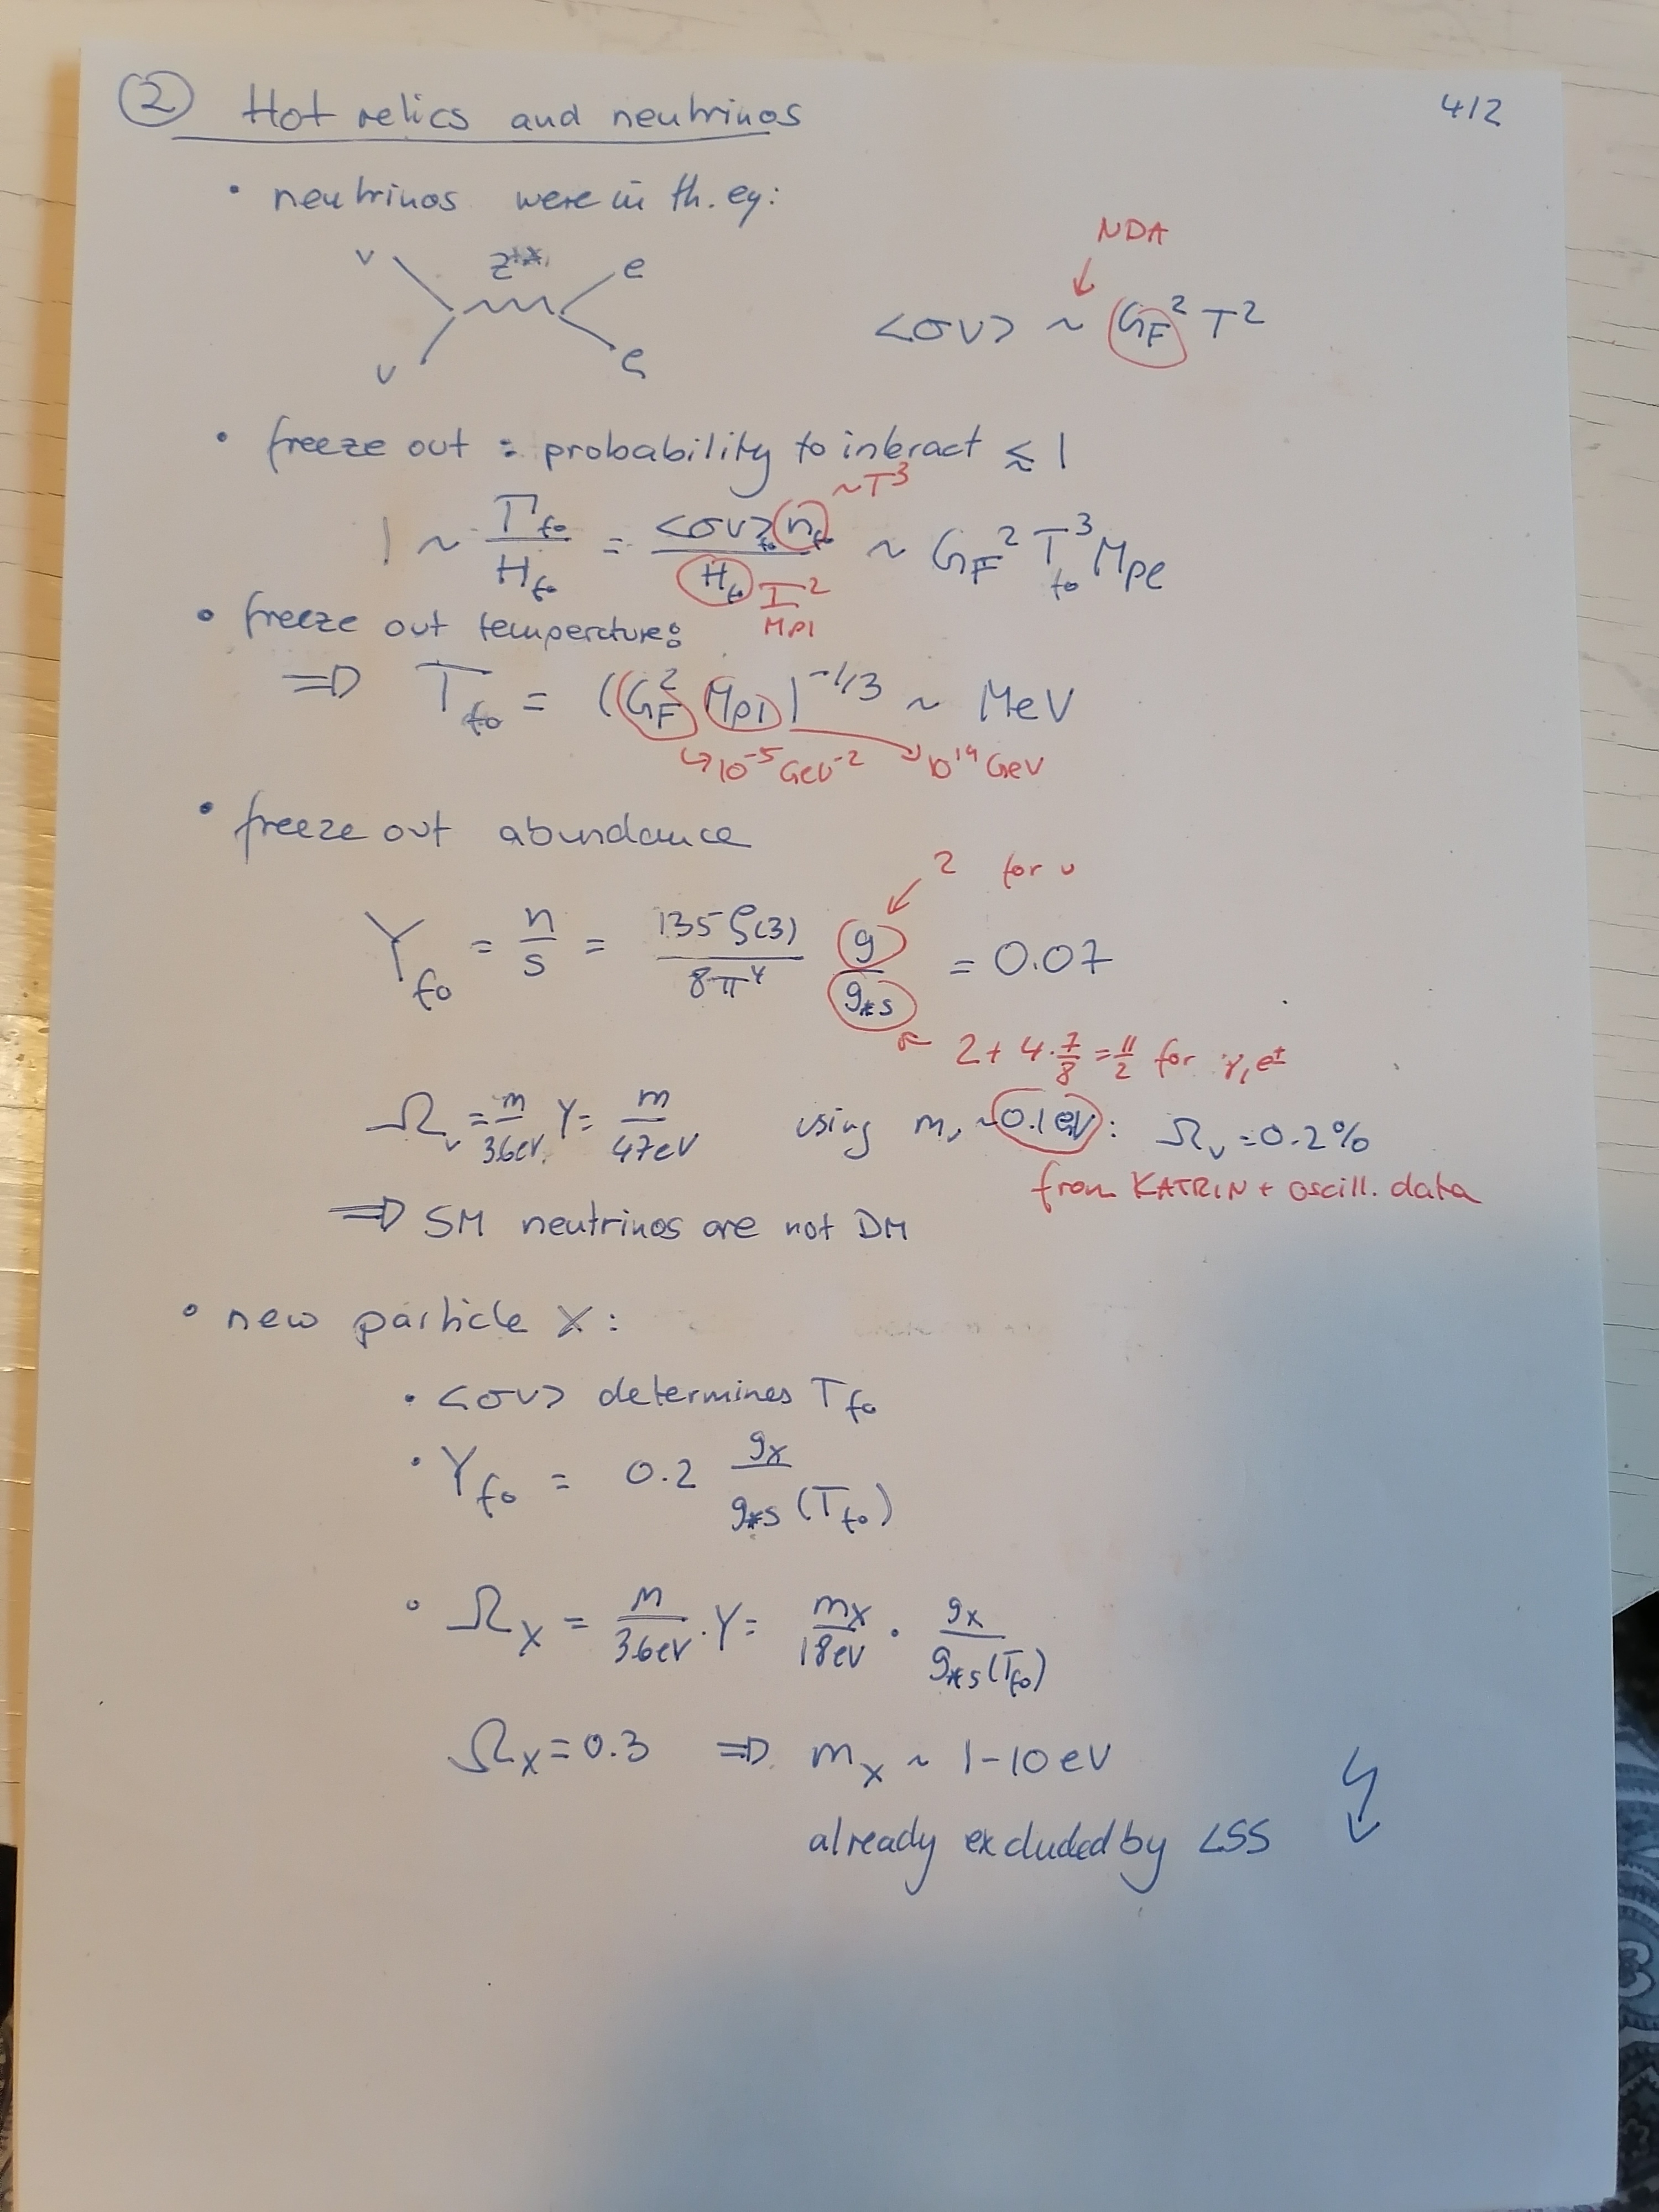 ② Hot relics and neutrinos 4/2
• neutrinos were in th. eq:
ν Z* e
NDA
<σv> ~ G_F² T²
ν e
• freeze out : probability to interact ≲ 1
~T³
1 ~ Γ_fo / H_fo = <σv>_fo n_fo / H_fo ~ G_F² T_fo³ M_Pl
T² / M_Pl
• freeze out temperature:
⇒ T_fo = (G_F² M_Pl)^-1/3 ~ MeV
↳ 10⁻⁵ GeV⁻² → 10¹⁹ GeV
• freeze out abundance
2 for ν
Y_fo = n/s = 135 ζ(3) / 8π⁴ g / g_*s = 0.07
2 + 4·7/8 = 11/2 for γ, e±
Ω_ν = m/3.6eV Y = m/47eV using m_ν ~ 0.1 eV : Ω_ν = 0.2%
from KATRIN + oscill. data
⇒ SM neutrinos are not DM
• new particle X :
• <σv> determines T_fo
• Y_fo = 0.2 g_X / g_*s (T_fo)
• Ω_X = m/3.6eV · Y = m_X/18eV · g_X / g_*s (T_fo)
Ω_X = 0.3 ⇒ m_X ~ 1-10 eV
already excluded by LSS